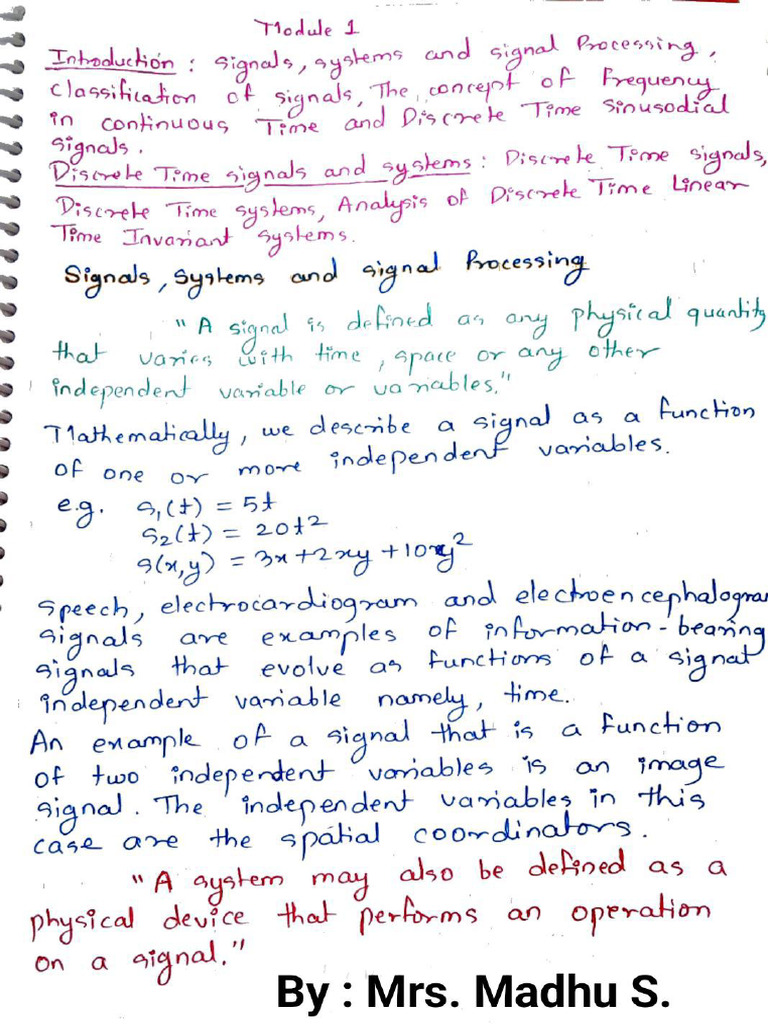 Module 1
Introduction : signals, systems and signal Processing,
classification of signals, The concept of Frequency
in continuous Time and Discrete Time sinusodial
signals.
Discrete Time signals and systems : Discrete Time signals,
Discrete Time systems, Analysis of Discrete Time Linear
Time Invariant systems.
Signals, systems and signal Processing
"A signal is defined as any physical quantity
that varies with time, space or any other
independent variable or variables."
Mathematically, we describe a signal as a function
of one or more independent variables.
e.g. s₁(t) = 5t
s₂(t) = 20t²
s(x,y) = 3x+2xy+10xy²
Speech, electrocardiogram and electroencephalogram
signals are examples of information-bearing
signals that evolve as functions of a signal
independent variable namely, time.
An example of a signal that is a function
of two independent variables is an image
signal. The independent variables in this
case are the spatial coordinators.
"A system may also be defined as a
physical device that performs an operation
on a signal."
By : Mrs. Madhu S.